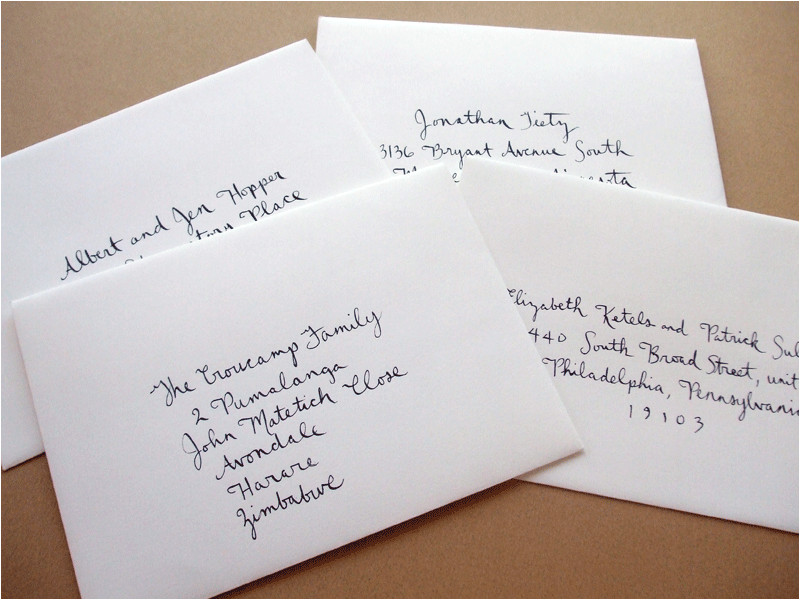 Jonathan Tiety
3136 Bryant Avenue South
Albert and Jen Hopper
Place
The Croucamp Family
2 Pumalanga
John Matetich Close
Avondale
Harare
Zimbabwe
Elizabeth Ketels and Patrick
440 South Broad Street, unit
Philadelphia, Pennsylvania
19103